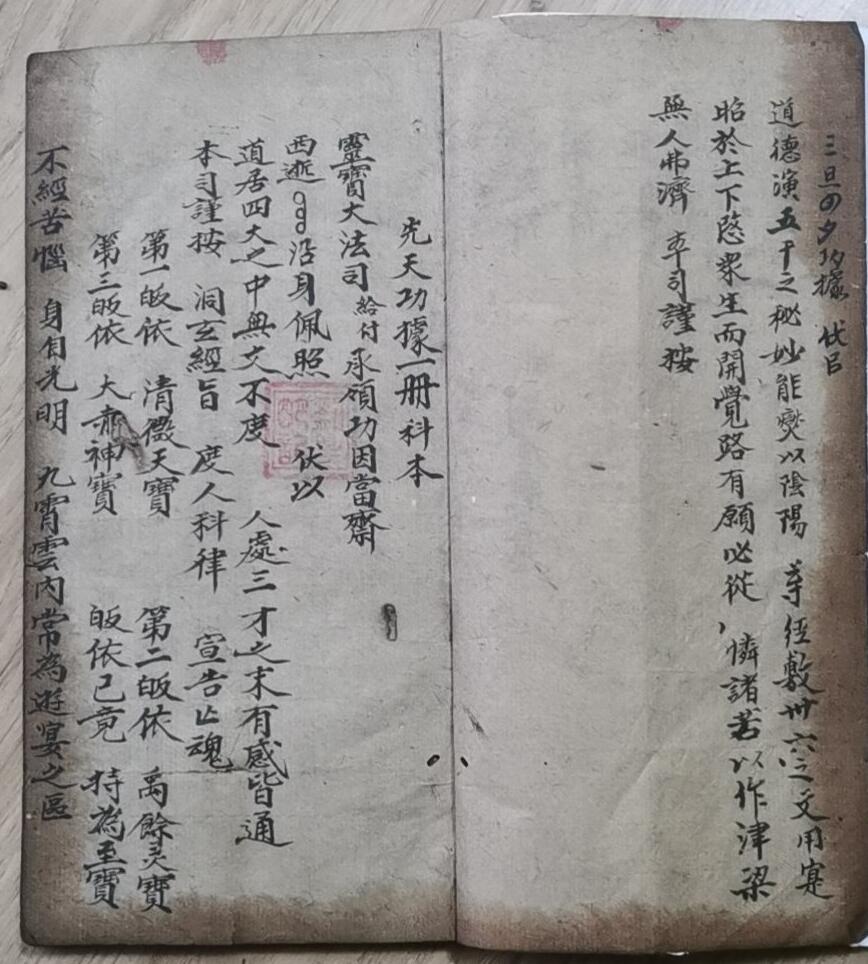 三旦四夕功據 伏曰
道德演五千之秘妙能燮以陰陽 等經敷卅六之文用寔
昭於上下愍衆生而開覺路有願必從，憐諸苦以作津梁
無人弗濟 本司謹按
先天功據一册科本
靈寶大法司給付承領功因當齋
西逝 沿身佩照 伏以
道居四大之中無文不度 人處三才之末有感皆通
本司謹按 洞玄經旨 度人科律 宣告亡魂
第一皈依 清微天寶 第二皈依 禹餘灵寶
第三皈依 大赤神寶 皈依已竟 持為至寶
不經苦惱 身有光明 九霄雲内常為遊宴之區